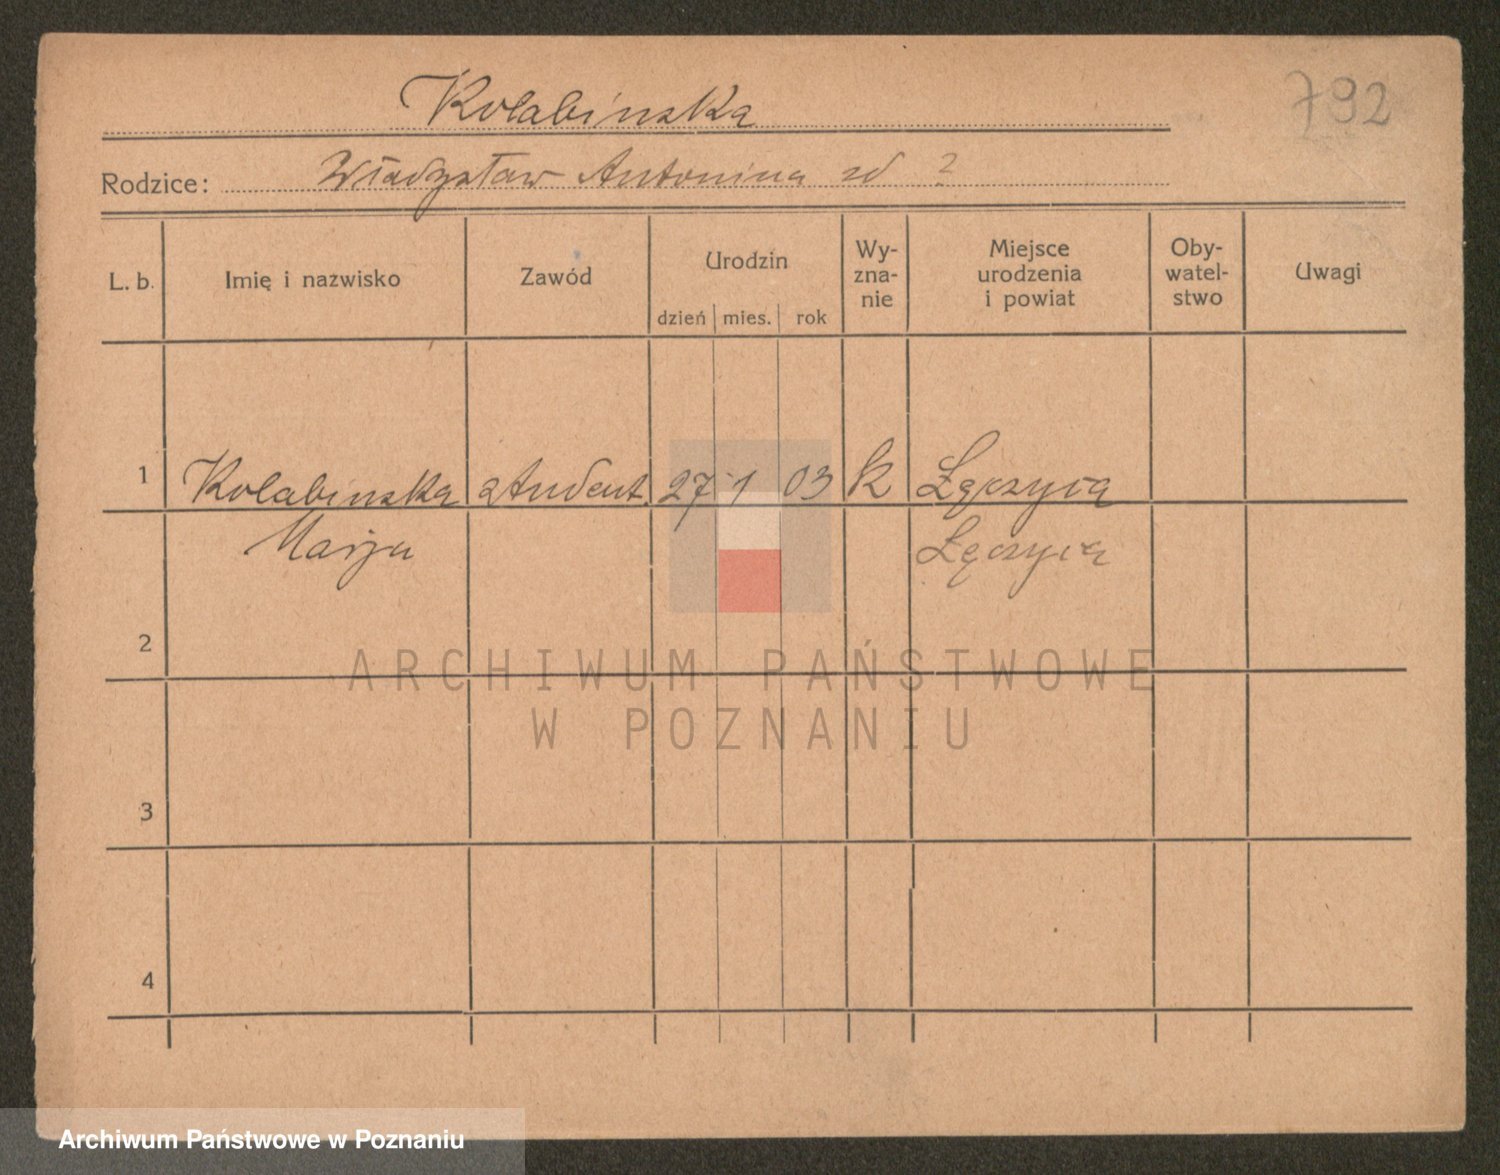 792
Kolabinska
Rodzice: Władysław Antonina zd ?
L. b. Imię i nazwisko Zawód Urodzin dzień mies. rok Wy-
zna-
nie Miejsce
urodzenia
i powiat Oby-
watel-
stwo Uwagi
1 Kolabinska student 27 1 03 k Łęczyca
Marja Łęczyca
2
ARCHIWUM PAŃSTWOWE
W POZNANIU
3
4
Archiwum Państwowe w Poznaniu